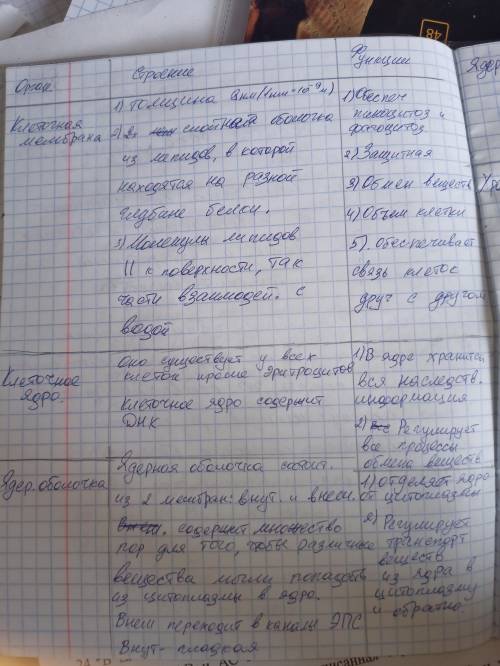 48
Орган
Строение
Функции
Ядер
Клеточная
мембрана
1) Толщина 8нм (1нм = 10⁻⁹м)
2) 2х слойная оболочка
из липидов, в которой
находятся на разной
глубине белки.
3) Молекулы липидов
II к поверхности, так
части взаимодей. с
водой
1) Обеспеч
пиноцитоз и
фагоцитоз
2) Защитная
3) Обмен веществ
4) Объём клетки
5). обеспечивает
связь клеток
друг с другом
Клеточное
ядро
Оно существует у всех
клеток кроме эритроцитов
Клеточное ядро содержит
ДНК
1) В ядре хранится
вся наследств.
информация
2) Регулирует
все процессы
обмена веществ
Ядер. оболочка
Ядерная оболочка состоит.
из 2 мембран: внут. и внеш.
содержит множество
пор для того, чтобы различные
вещества могли попадать
из цитоплазмы в ядро.
Внеш переходит в каналы ЭПС
Внут - гладкая
1) отделяет ядро
от цитоплазмы
2) Регулирует
транспорт
веществ
из ядра в
цитоплазму
и обратно